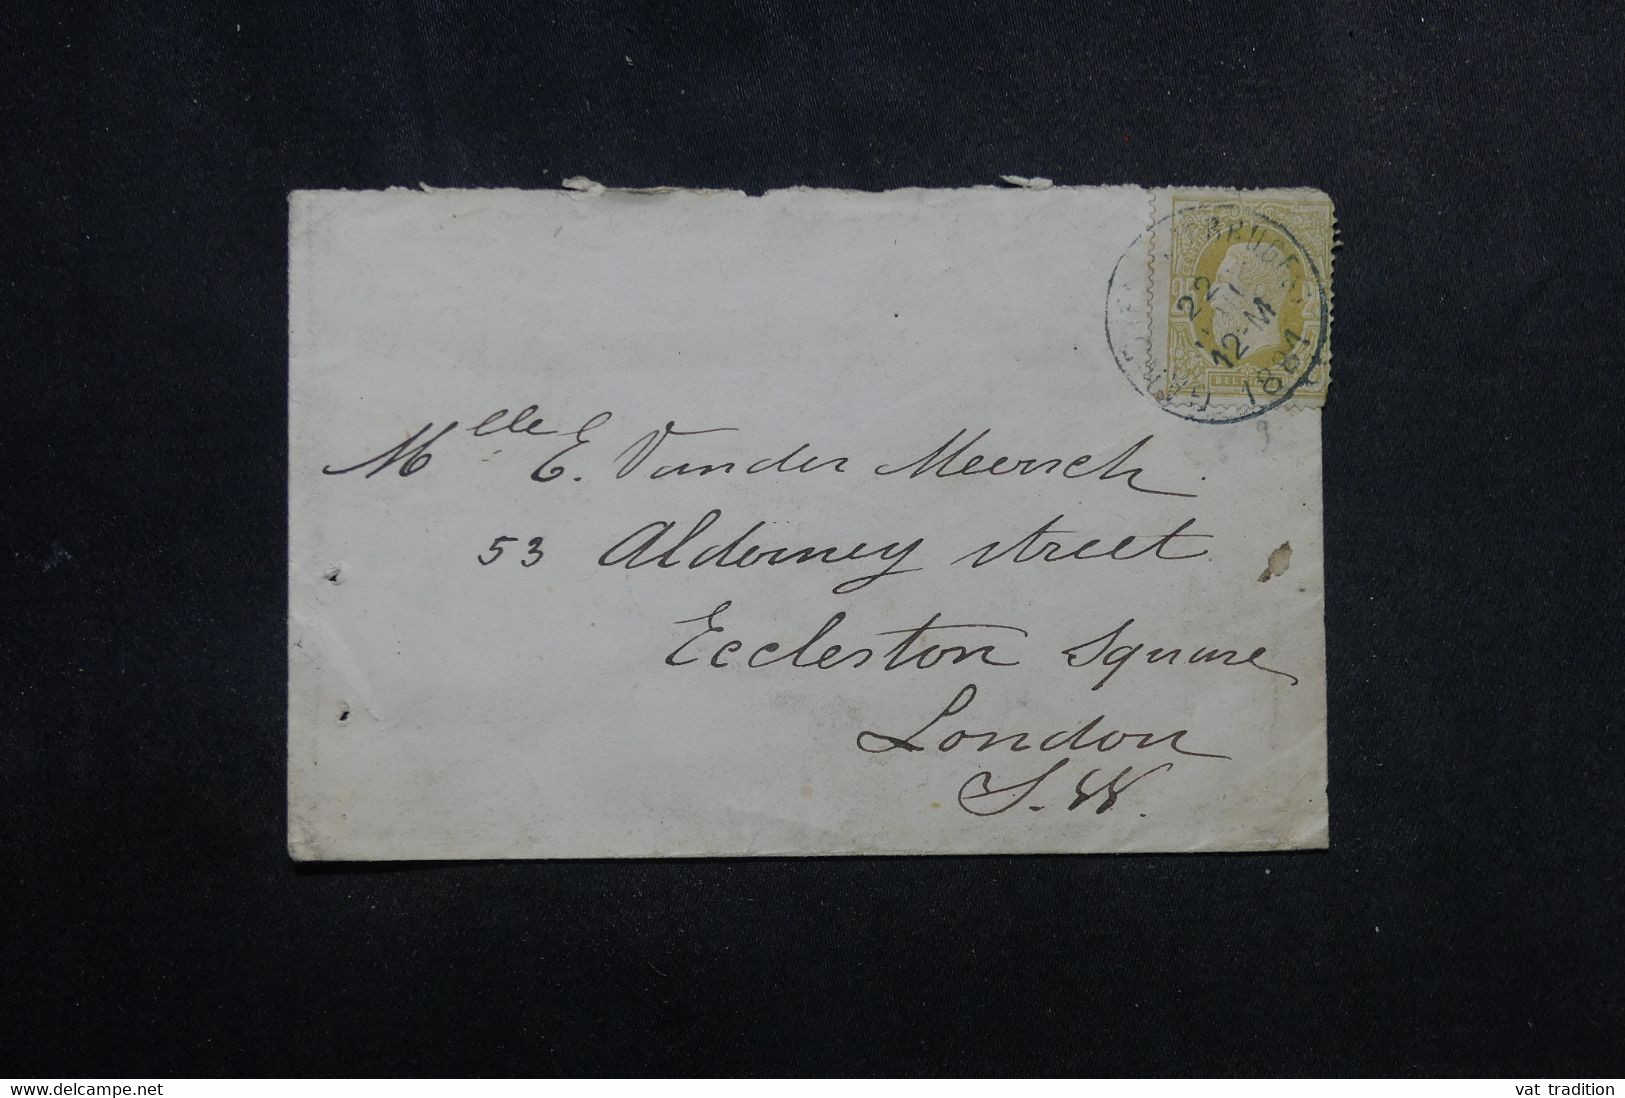 BRUGES
22
12-M
1881
BEL
Mlle E. Van der Meersch.
53 Alderney street
Eccleston Square
London
S. W.
www.delcampe.net
vat tradition